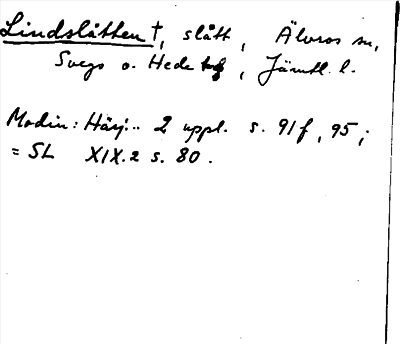 Lindslåtten †, slått, Älvros sn,
Svegs o. Hede tg, Jämtl. l.
Modin: Härj... 2 uppl. s. 91f, 95;
= SL XIX.2 s. 80.